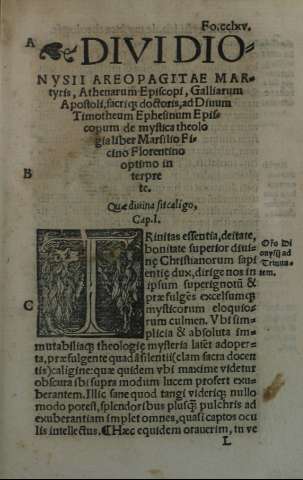 Fo.cclxv.
A
DIVI DIO-
NYSII AREOPAGITAE MAR-
tyris, Athenarum Episcopi, Galliarum
Apostoli, sacriq; doctoris, ad Diuum
Timotheum Ephesinum Epis-
copum de mystica theolo
gia liber Marsilio Fi
cino Florentino
optimo in
B
terpre
te.
Quæ diuina sit caligo,
Cap. I.
TRinitas essentia, deitate,
bonitate superior diuinę
Christianorum sapi
entię dux, dirige nos in
ipsum superignotū &
præfulgēs excelsumq;
C
mysticorum eloquio
rum culmen. Vbi sim
plicia & absoluta im
Oro Di
onysij ad
Trinita
tem.
mutabiliaq; theologię mysteria latēt adoper
ta, præfulgente quadā silentij (clam sacra docen
tis) caligine: quæ quidem vbi maxime videtur
obscura ibi supra modum lucem profert exu-
berantem. Illic sane quod tangi videriq; nullo
modo potest, splendoribus plusq̄ pulchris ad
exuberantiam implet omnes, quasi captos ocu
lis intellectus. ¶Hæc equidem orauerim, tu ve
L